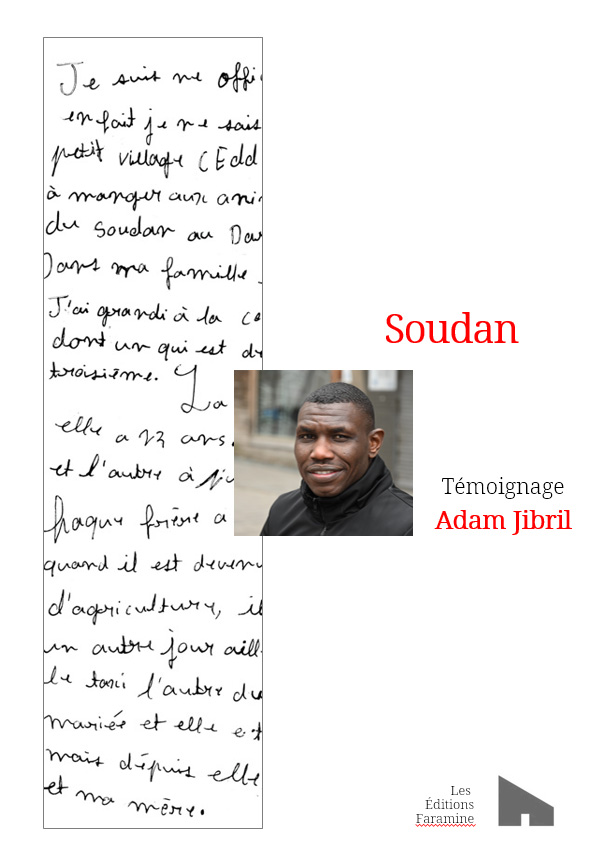 Je suis ne offi
en fait je ne sais
petit village (Edd
à manger aux ani
du Soudan au Dar
Dans ma famille
J'ai grandi à la ca
dont un qui est de
troisième.
La
elle a 12 ans.
et l'autre à
haque frère a
quand il est devenu
d'agriculture, il
un autre jour aill
le taxi l'autre du
mariée et elle est
mais dépuis elle
et ma mère.
Soudan
Témoignage
Adam Jibril
Les
Éditions
Faramine